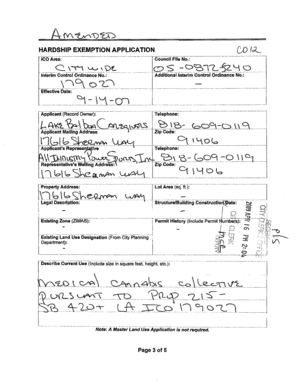 AMENDED
HARDSHIP EXEMPTION APPLICATION CD 12
ICO Area: CITYWIDE
Council File No.: 05-0872
Interim Control Ordinance No.: 179027
Additional Interim Control Ordinance No.: —
Effective Date: 9-14-07
Applicant (Record Owner):
Telephone: 818-609-0119
Applicant Mailing Address
17616 Sherman way
Zip Code: 91406
Applicant's Representative
Telephone: 818-609-0119
Representative's Mailing Address:
17616 Sherman way
Zip Code: 91406
Property Address: 17616 Sherman way
Lot Area (sq. ft.):
Legal Description: —
Structure/Building Construction Date: —
Existing Zone (ZIMAS): —
Permit History (Include Permit Numbers): —
Existing Land Use Designation (From City Planning Department): —
CITY CLERK
PM 2:04
Describe Current Use (Include size in square feet, height, etc.):
MEDICAL CANNABIS COLLECTIVE
PURSUANT TO PROP 215-
SB 420+ LA ICO 179027
Note: A Master Land Use Application is not required.
Page 3 of 5